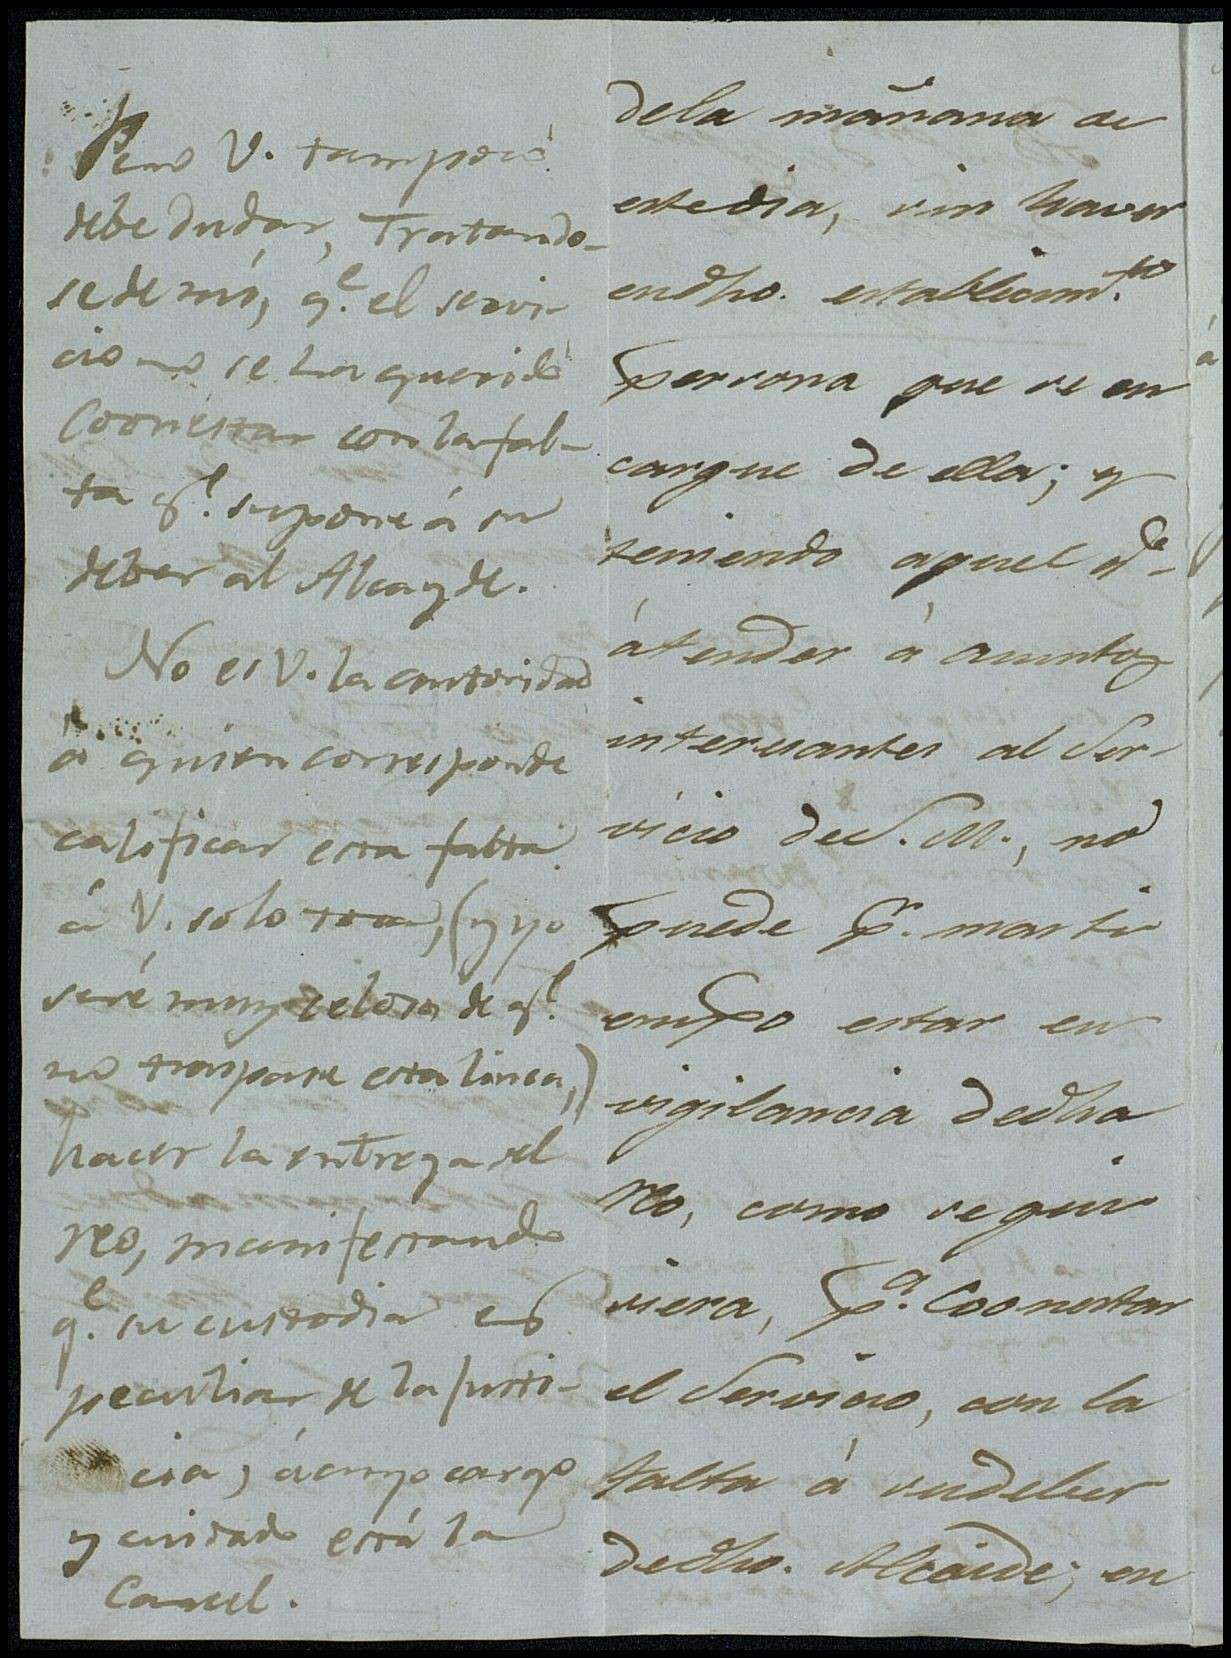 Pero V. tampoco
debe dudar, tratando-
se de mí, q.e el servi-
cio no se ha querido
Coonestar con la fal-
ta q.e supone á su
deber al Alcayde.
No es V. la autoridad
á quien corresponde
calificar esta falta
á V. solo toca, (y yo
seré muy celosa de q.e
no traspase esta linea,)
hacer la entrega del
reo, manifestando
q.e su custodia es
peculiar de la justi-
cia, á cuyo cargo
y cuidado está la
Carcel.
dela mañana de
estedia, sin haver
endho. establecim.to
persona que se en
cargue de ella; y
teniendo aquel q.e
átender á asuntos
interesantes al Ser-
vicio de S. M., no
puede p.r mas ti
empo estar en
vigilancia dedha
reo, como se qui
siera, p.a Coonestar
el Servicio, con la
falta á sudeber
dedho. Alcaide; en